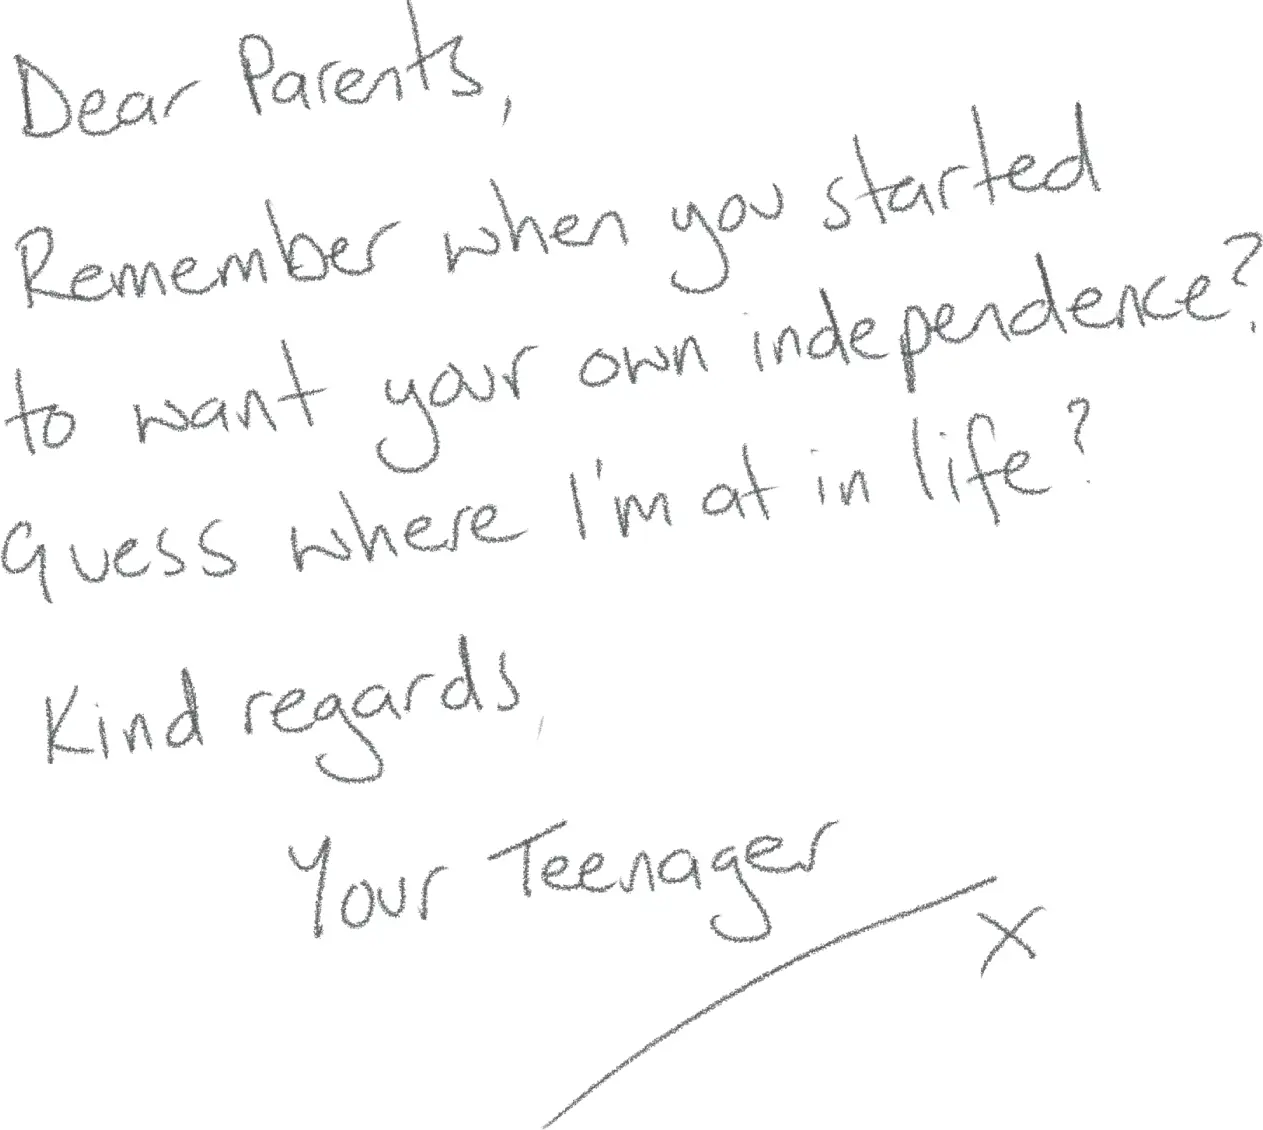 Dear Parents,
Remember when you started
to want your own independence?
Guess where I'm at in life?
Kind regards,
Your Teenager
x